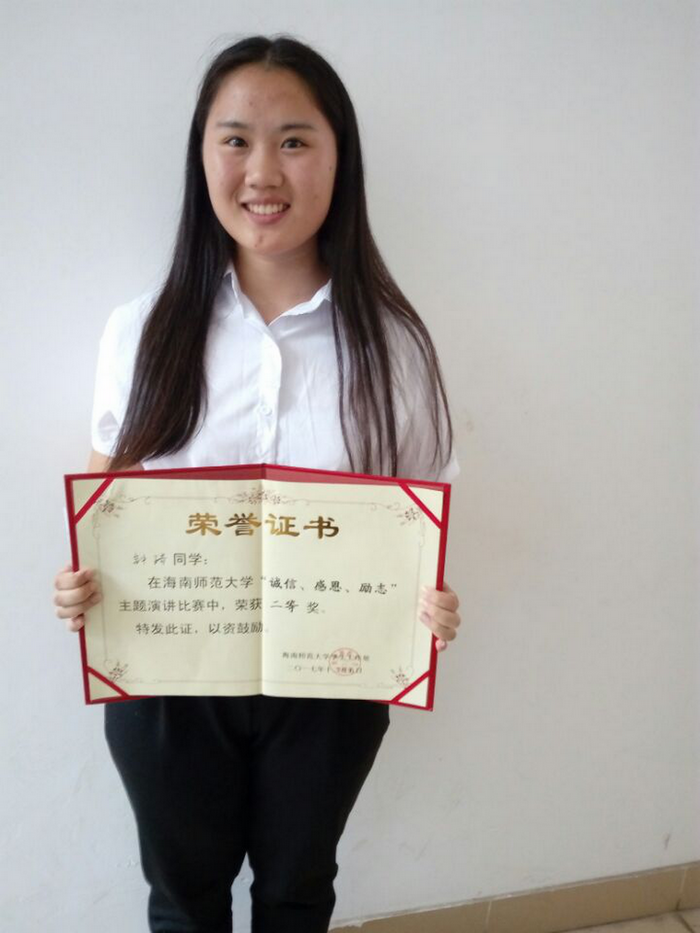 荣誉证书
同学:
在海南师范大学“诚信、感恩、励志”
主题演讲比赛中，荣获 二等 奖。
特发此证，以资鼓励。
海南师范大学学生工作处
二〇一七年十